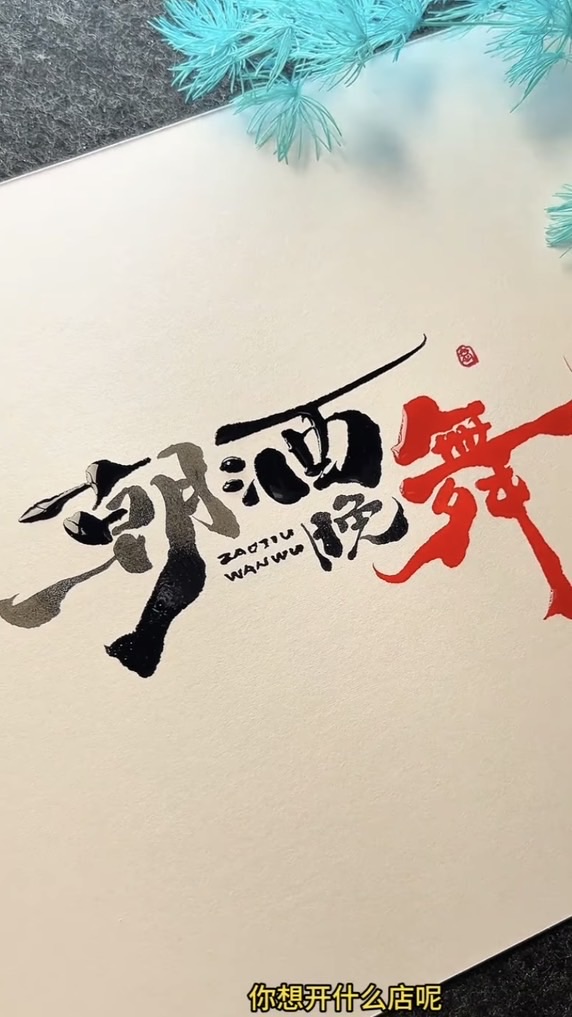 朝酒晚舞
ZAOJIU
WANWU
你想开什么店呢